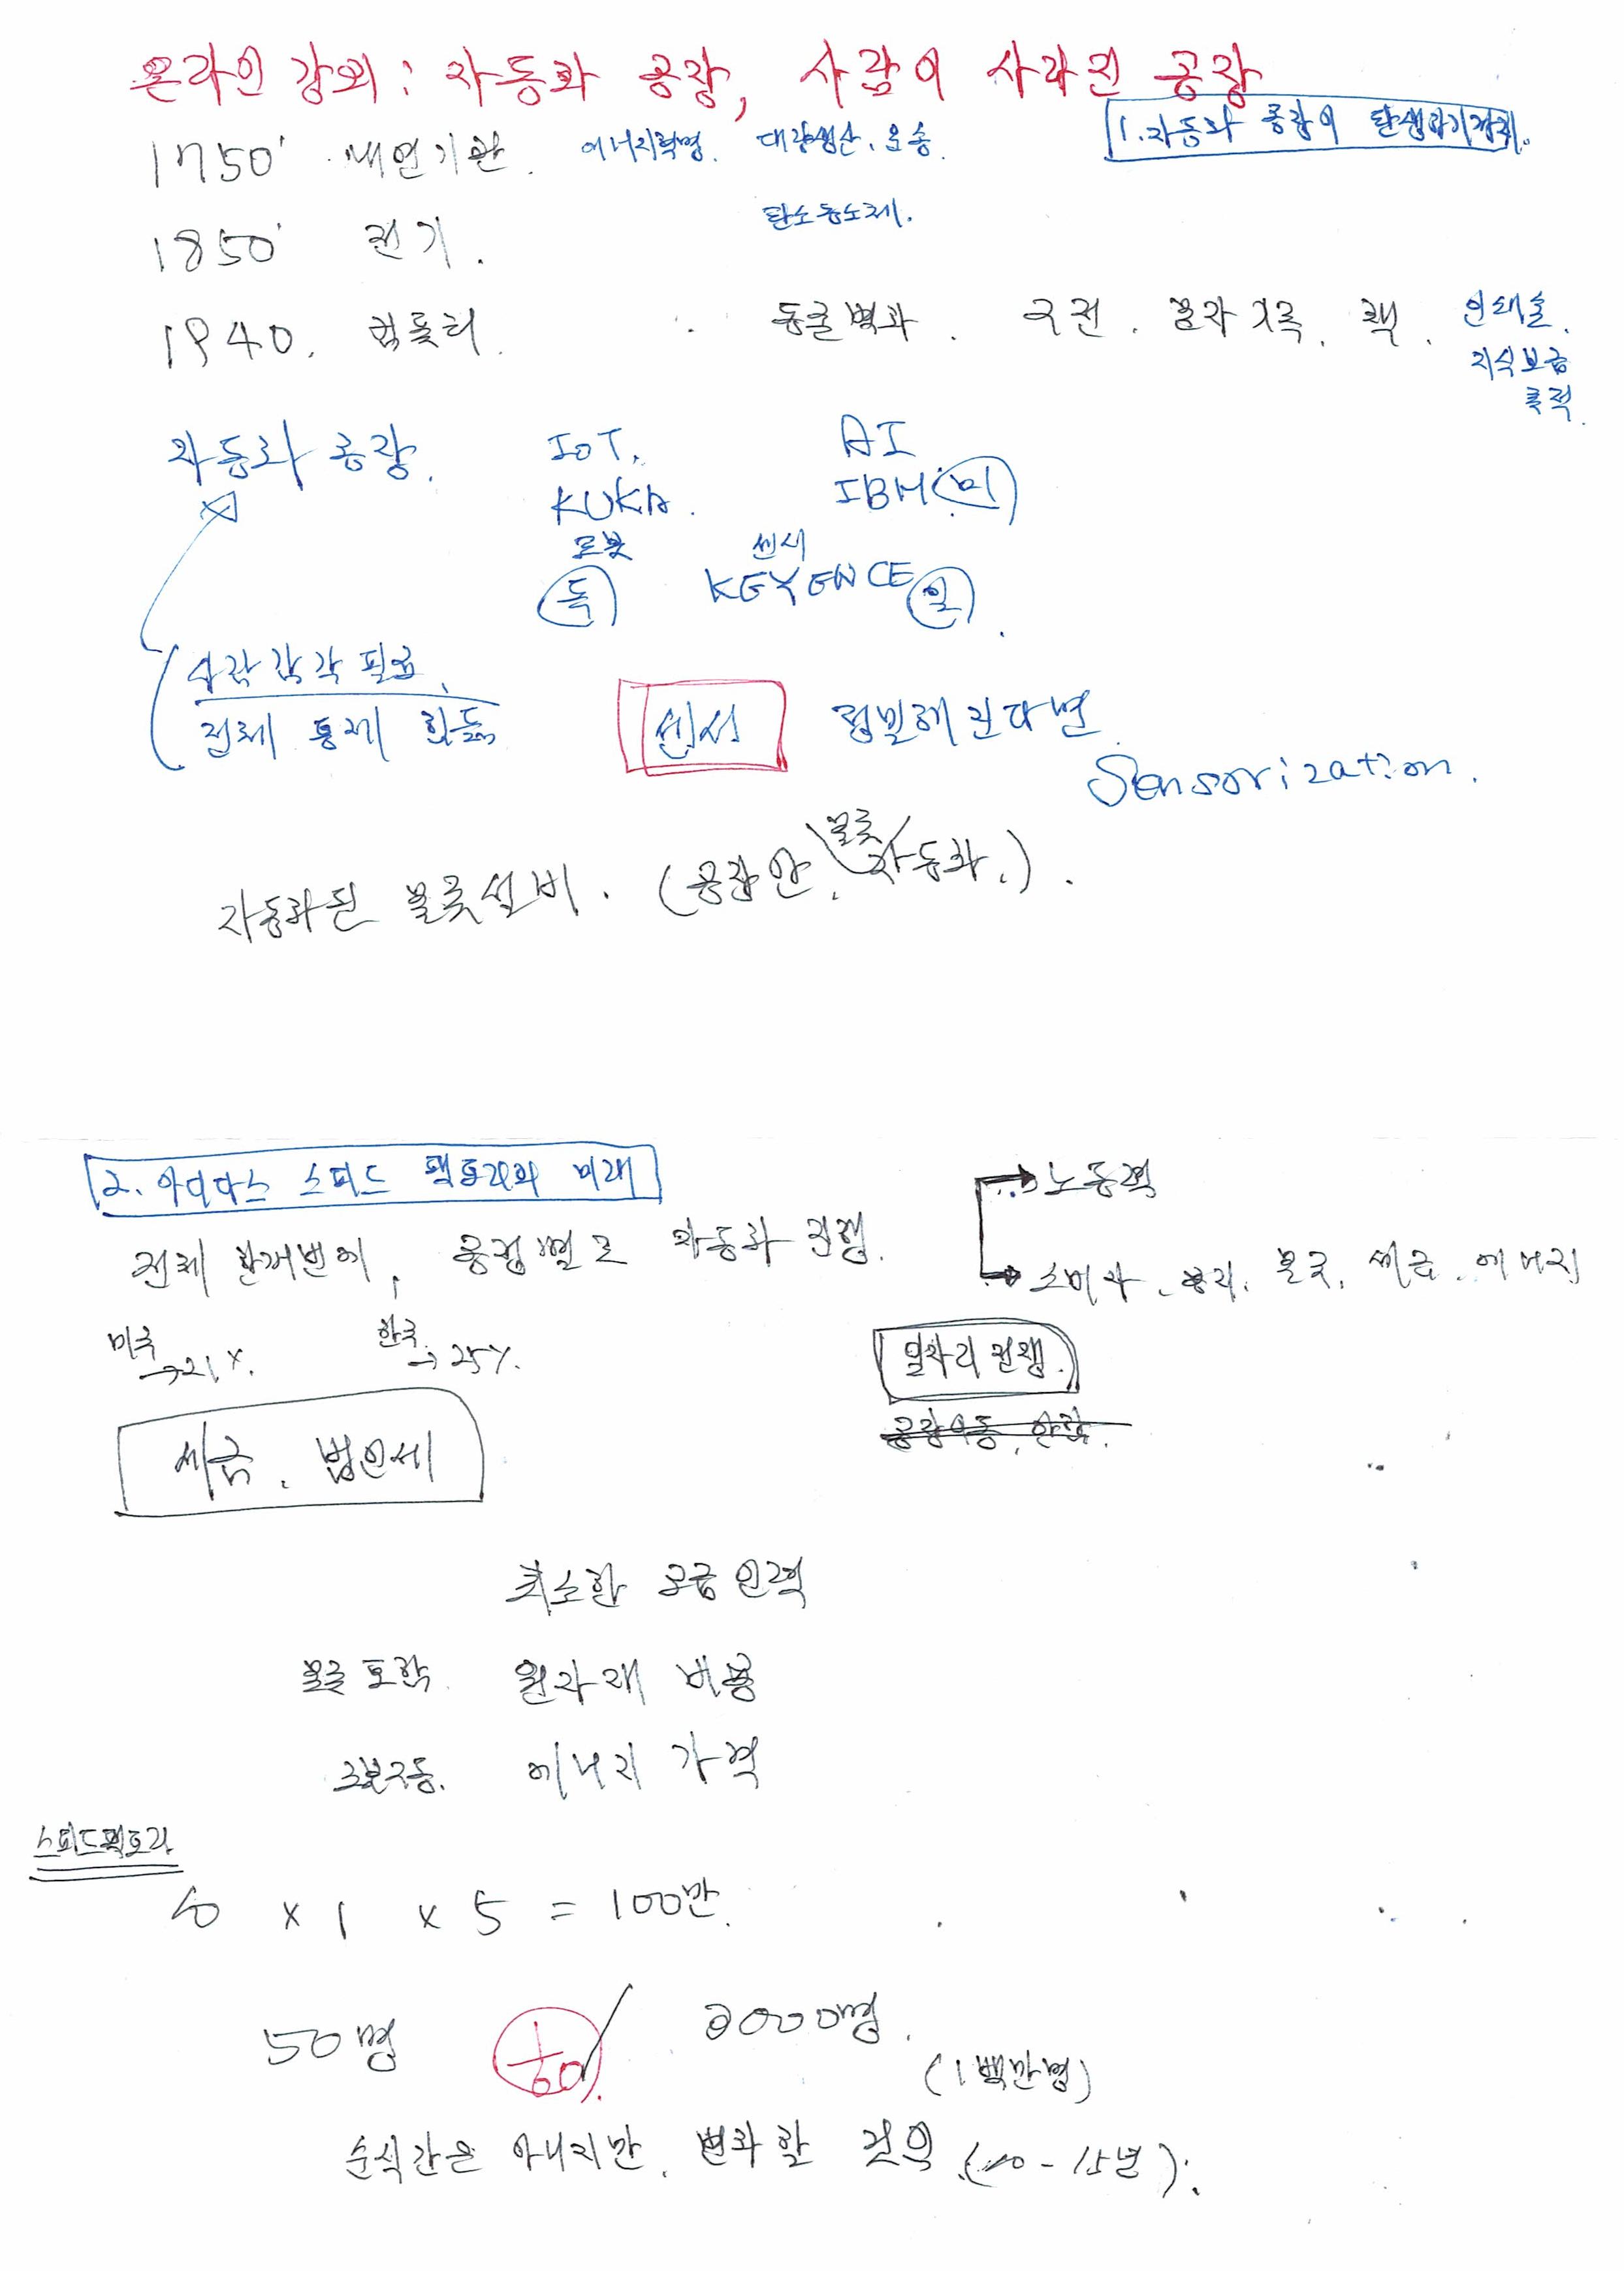 온라인 강의 : 자동화 공장, 사람이 사라진 공장
1. 자동화 공장의 탄생과
1750' 내연기관. 에너지혁명. 대량생산.
탄소
1850' 전기.
1940. 컴퓨터. 동굴벽화. 구전. 문자기록. 책. 인쇄술.
지식보급
목적.
자동화 공장. IoT. AI
KUKA. IBM (미)
로봇 센서
(독) KEYENCE (일).
감각 필요
전체 통제
센서 정밀해진다면
Sensorization.
물류
자동화된 물류설비. (공장안, 자동화.).
2. 아디다스 스피드 팩토리의 미래
→ 노동력
전체 한꺼번에, 공정별로 자동화 진행.
→ 소비자. 물류. 세금. 에너지
미국 → 21%. 한국. → 25%.
일자리 전쟁.
공장
세금. 법인세
최소한 공급인력
물류포함. 원자재 비용
에너지 가격
스피드팩토리
× 1 × 5 = 100만.
50명 명.
(1백만명)
순식간은 아니지만. 변화할 것임 (10-15년).